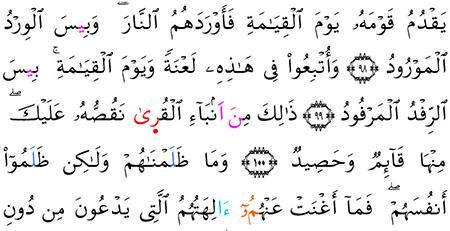 يَقْدُمُ قَوْمَهُۥ يَوْمَ ٱلْقِيَٰمَةِ فَأَوْرَدَهُمُ ٱلنَّارَ ۖ وَبِيسَ ٱلْوِرْدُ
ٱلْمَوْرُودُ ٩٨ وَأُتْبِعُوا۟ فِى هَٰذِهِۦ لَعْنَةً وَيَوْمَ ٱلْقِيَٰمَةِ ۚ بِيسَ
ٱلرِّفْدُ ٱلْمَرْفُودُ ٩٩ ذَٰلِكَ مِنَ اَنۢبَآءِ ٱلْقُرِىٰ نَقُصُّهُۥ عَلَيْكَ ۖ
مِنْهَا قَآئِمٌ وَحَصِيدٌ ١٠٠ وَمَا ظَلَمْنَٰهُمْ وَلَٰكِن ظَلَمُوٓا۟
أَنفُسَهُمْ ۖ فَمَآ أَغْنَتْ عَنْهُمُۥٓ ءَالِهَتُهُمُ ٱلَّتِى يَدْعُونَ مِن دُونِ